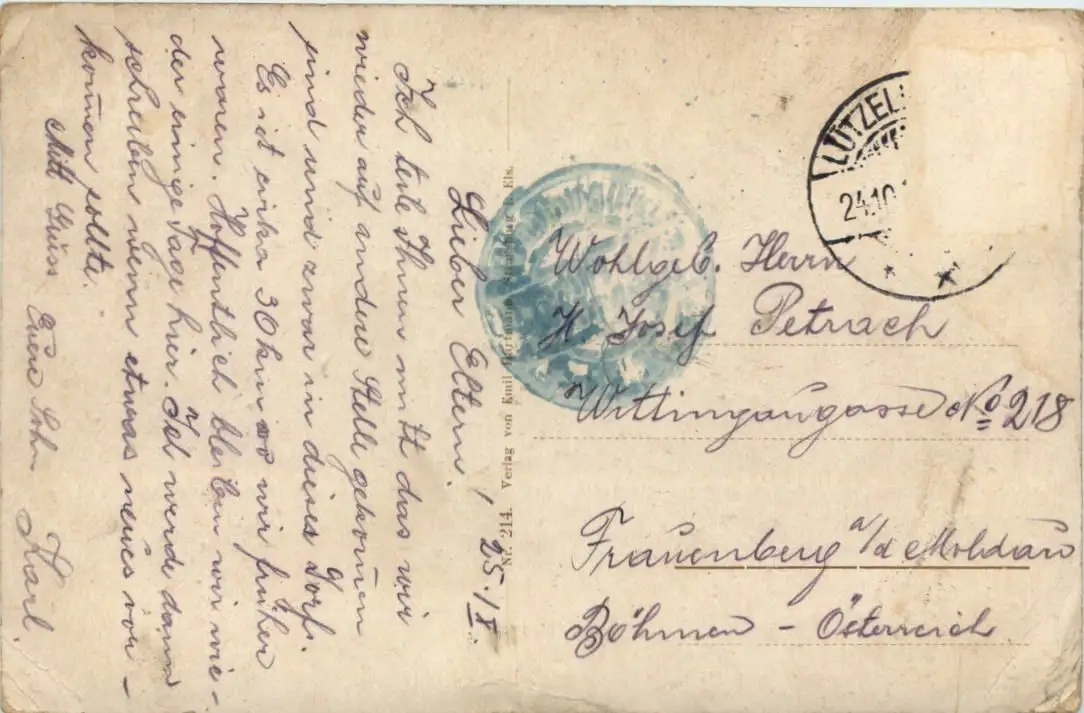 25./IX.
Lieber Eltern!
Ich teile Ihnen mitt das wir
wieder auf andere Stelle gekom̄en
sind und zwar in dieses Dorf.
Es ist cirka 30 km wo wir früher
waren. Hoffentlich bleiben wir wie-
der einige Tage hier. Ich werde dann
schreiben wenn etwas neues vor-
kom̄en sollte.
Mitt Gruss Euere Sohn Karl.
Nr. 214. Verlag von Emil Hartmann, Strassburg i. Els.
LÜTZEL
24.10.
Wohlgeb. Herrn
H Josef Petrach
Wittingaugasse No 218
Frauenberg a/d Moldau
Böhmen - Österreich